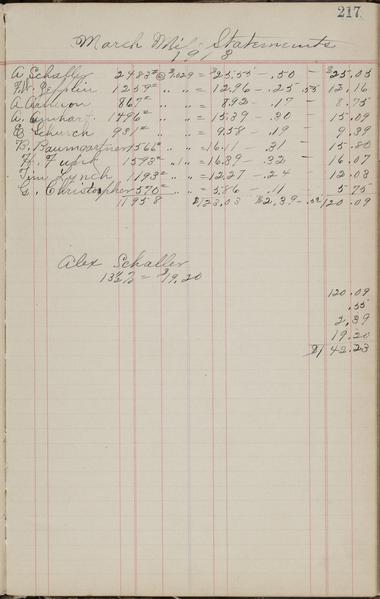 217
March Milk Statements
1918
A Schaffer 2483# @ $.029 = $25.55 - .50 - $25.05
1259# " " = 12.96 - .25 .55 12.16
A 867# " " = 8.92 - .17 - 8.75
A. 1496# " " = 15.39 - .30 - 15.09
E Schurch 931# " " = 9.58 - .19 - 9.39
B. Baumgartner 1566# " " = 16.11 - .31 - 15.80
H. 1593# " " = 16.39 - .32 - 16.07
Tim Lynch 1193# " " = 12.27 - .24 - 12.03
G. Christopher 570# " " = 5.86 - .11 - 5.75
11958 $123.03 $2.39 - .55 $120.09
Alex Schaller
= $19.20
120.09
.55
2.39
19.20
$142.23